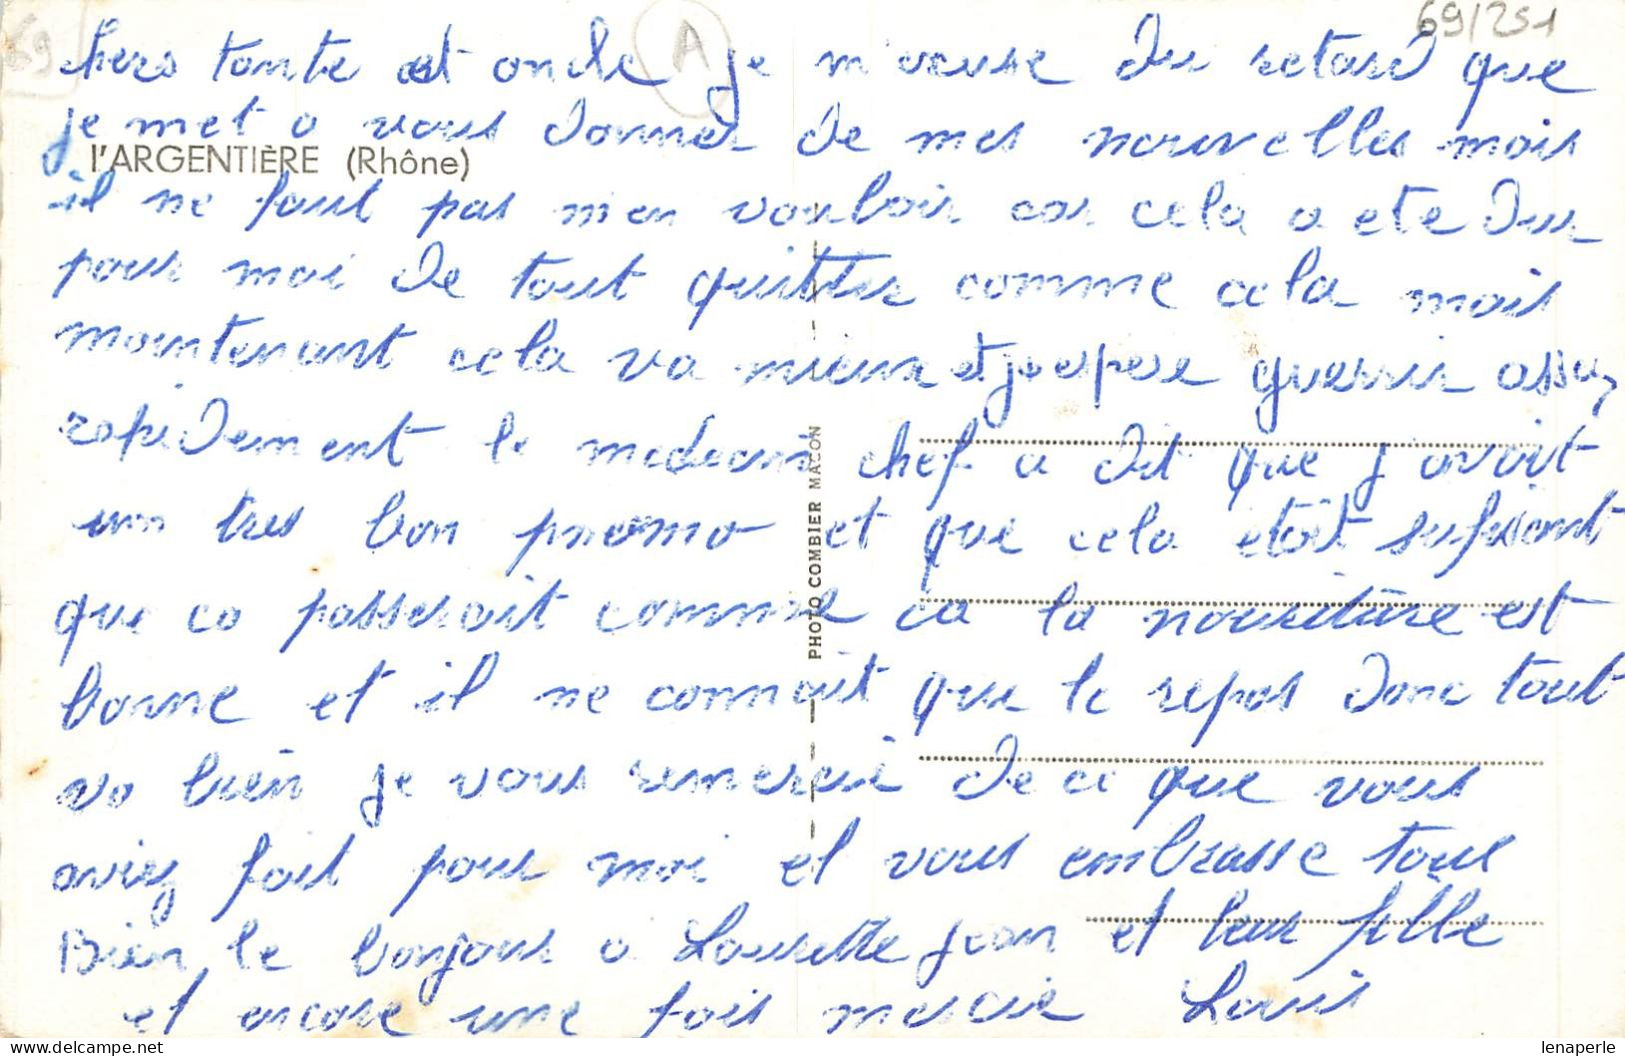 69/251
69
A
chers tante et oncle je m'excuse du retard que
je met a vous donner de mes nouvelles mais
l'ARGENTIÈRE (Rhône)
il ne faut pas men vouloir car cela a ete dur
pour moi de tout quitter comme cela mais
maintenant cela va mieux et j'espere guerrir assez
rapidement le medecin chef a dit que j'avait
un tres bon pneomo et que cela étoit sufisant
que ca passerait comme ca la nouriture est
bonne et il ne connait que le repos donc tout
va bien je vous remercie de ce que vous
aviez fait pour moi et vous embrasse tous
Bien le bonjour a Laurette jean et leur fille
et encore une fois mercie Louis
PHOTO COMBIER MACON
lenaperle